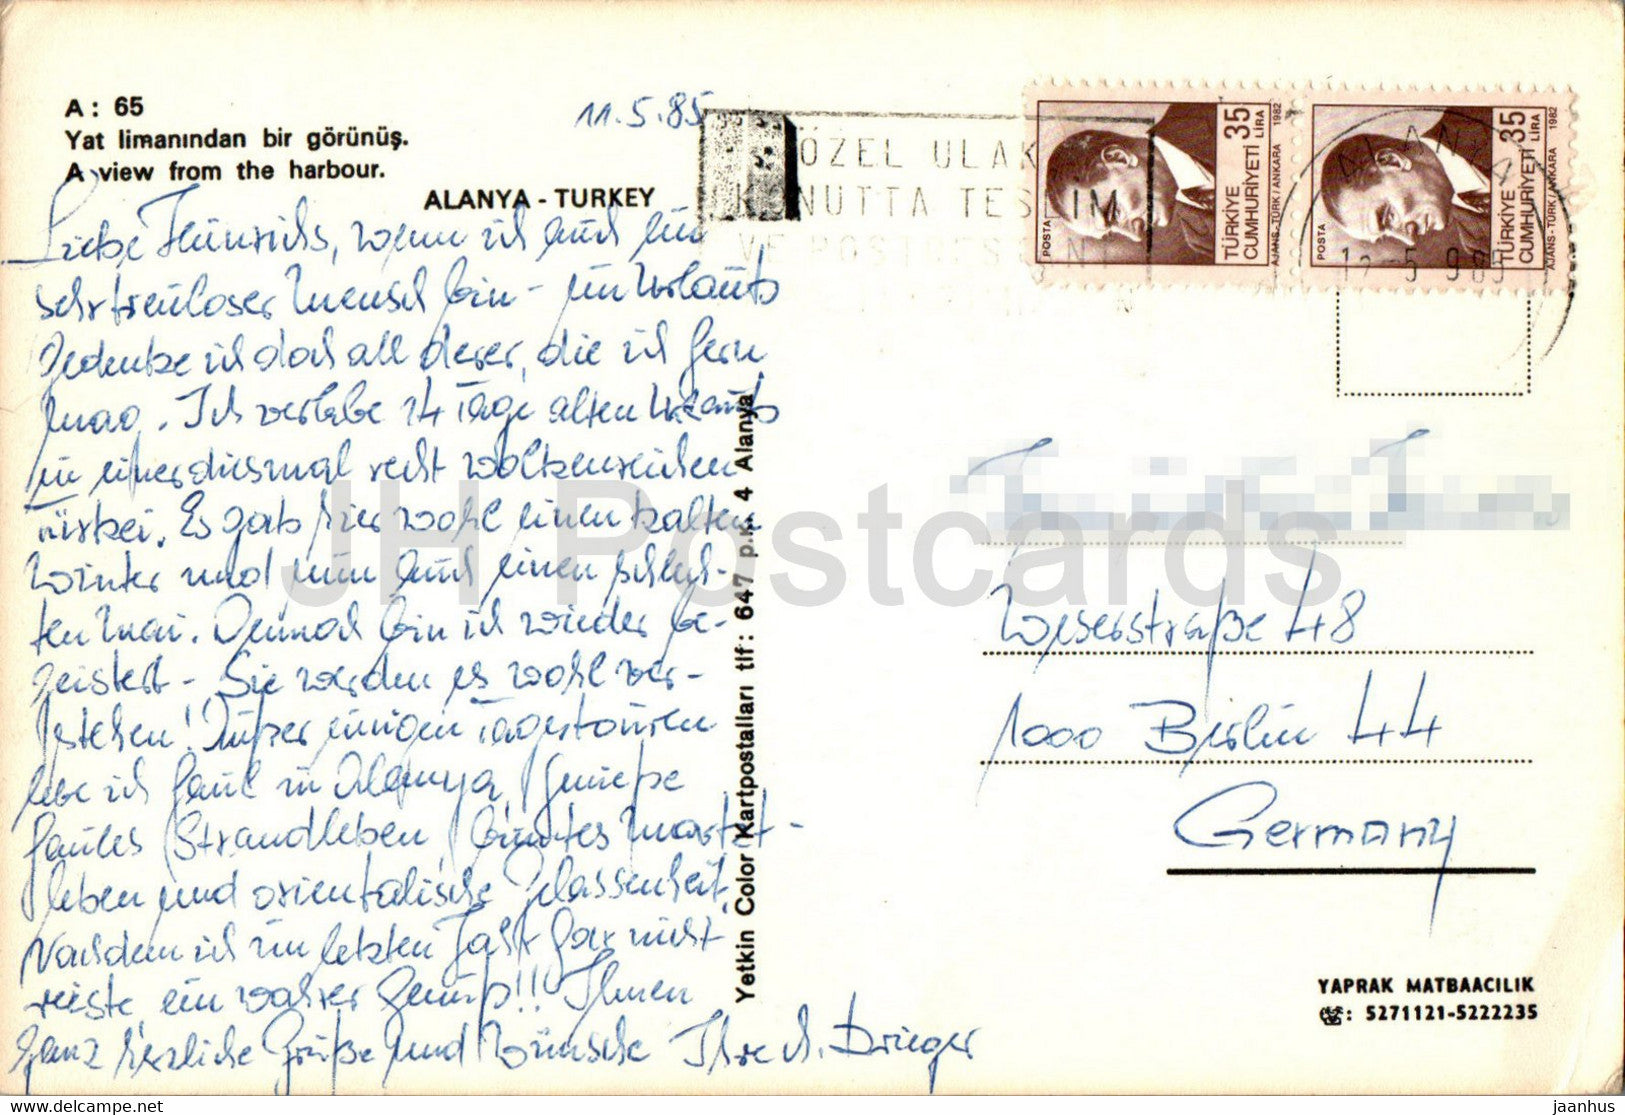 A : 65
Yat limanından bir görünüş.
A view from the harbour.
ALANYA - TURKEY
11.5.85
Liebe Heinrichs, wenn ich auch ein
sehr treuloser Mensch bin - im Urlaub
gedenke ich doch all derer, die ich gern
mag. Ich verlebe 14 Tage alten Urlaub
in einer diesmal recht wolkenreichen
Türkei. Es gab hier wohl einen kalten
Winter und nun auch einen schlech-
ten Mai. Dennoch bin ich wieder be-
geistert - Sie werden es wohl ver-
stehen! Außer einigen Tagestouren
lebe ich faul in Alanya, genieße
faules Strandleben, buntes Markt-
leben und orientalische Gelassenheit.
Nachdem ich im letzten Jahr gar nicht
reiste, ein wahrer Genuß!! Ihnen
ganz herzliche Grüße und Wünsche Ihre H. Drieger
Yetkin Color Kartpostalları tlf : 647 p.k. 4 Alanya
ÖZEL ULAK
KONUTTA TESLİM
POSTA
TÜRKİYE
CUMHURİYETİ
35
LİRA
AJANS - TÜRK / ANKARA 1982
POSTA
TÜRKİYE
CUMHURİYETİ
35
LİRA
AJANS - TÜRK / ANKARA 1982
ALANYA
Weserstraße 48
1000 Berlin 44
Germany
YAPRAK MATBAACILIK
☎: 5271121-5222235
JH Postcards
https://www.delcampe.net
jaanhus